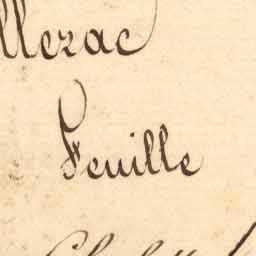 llerac
Feuille